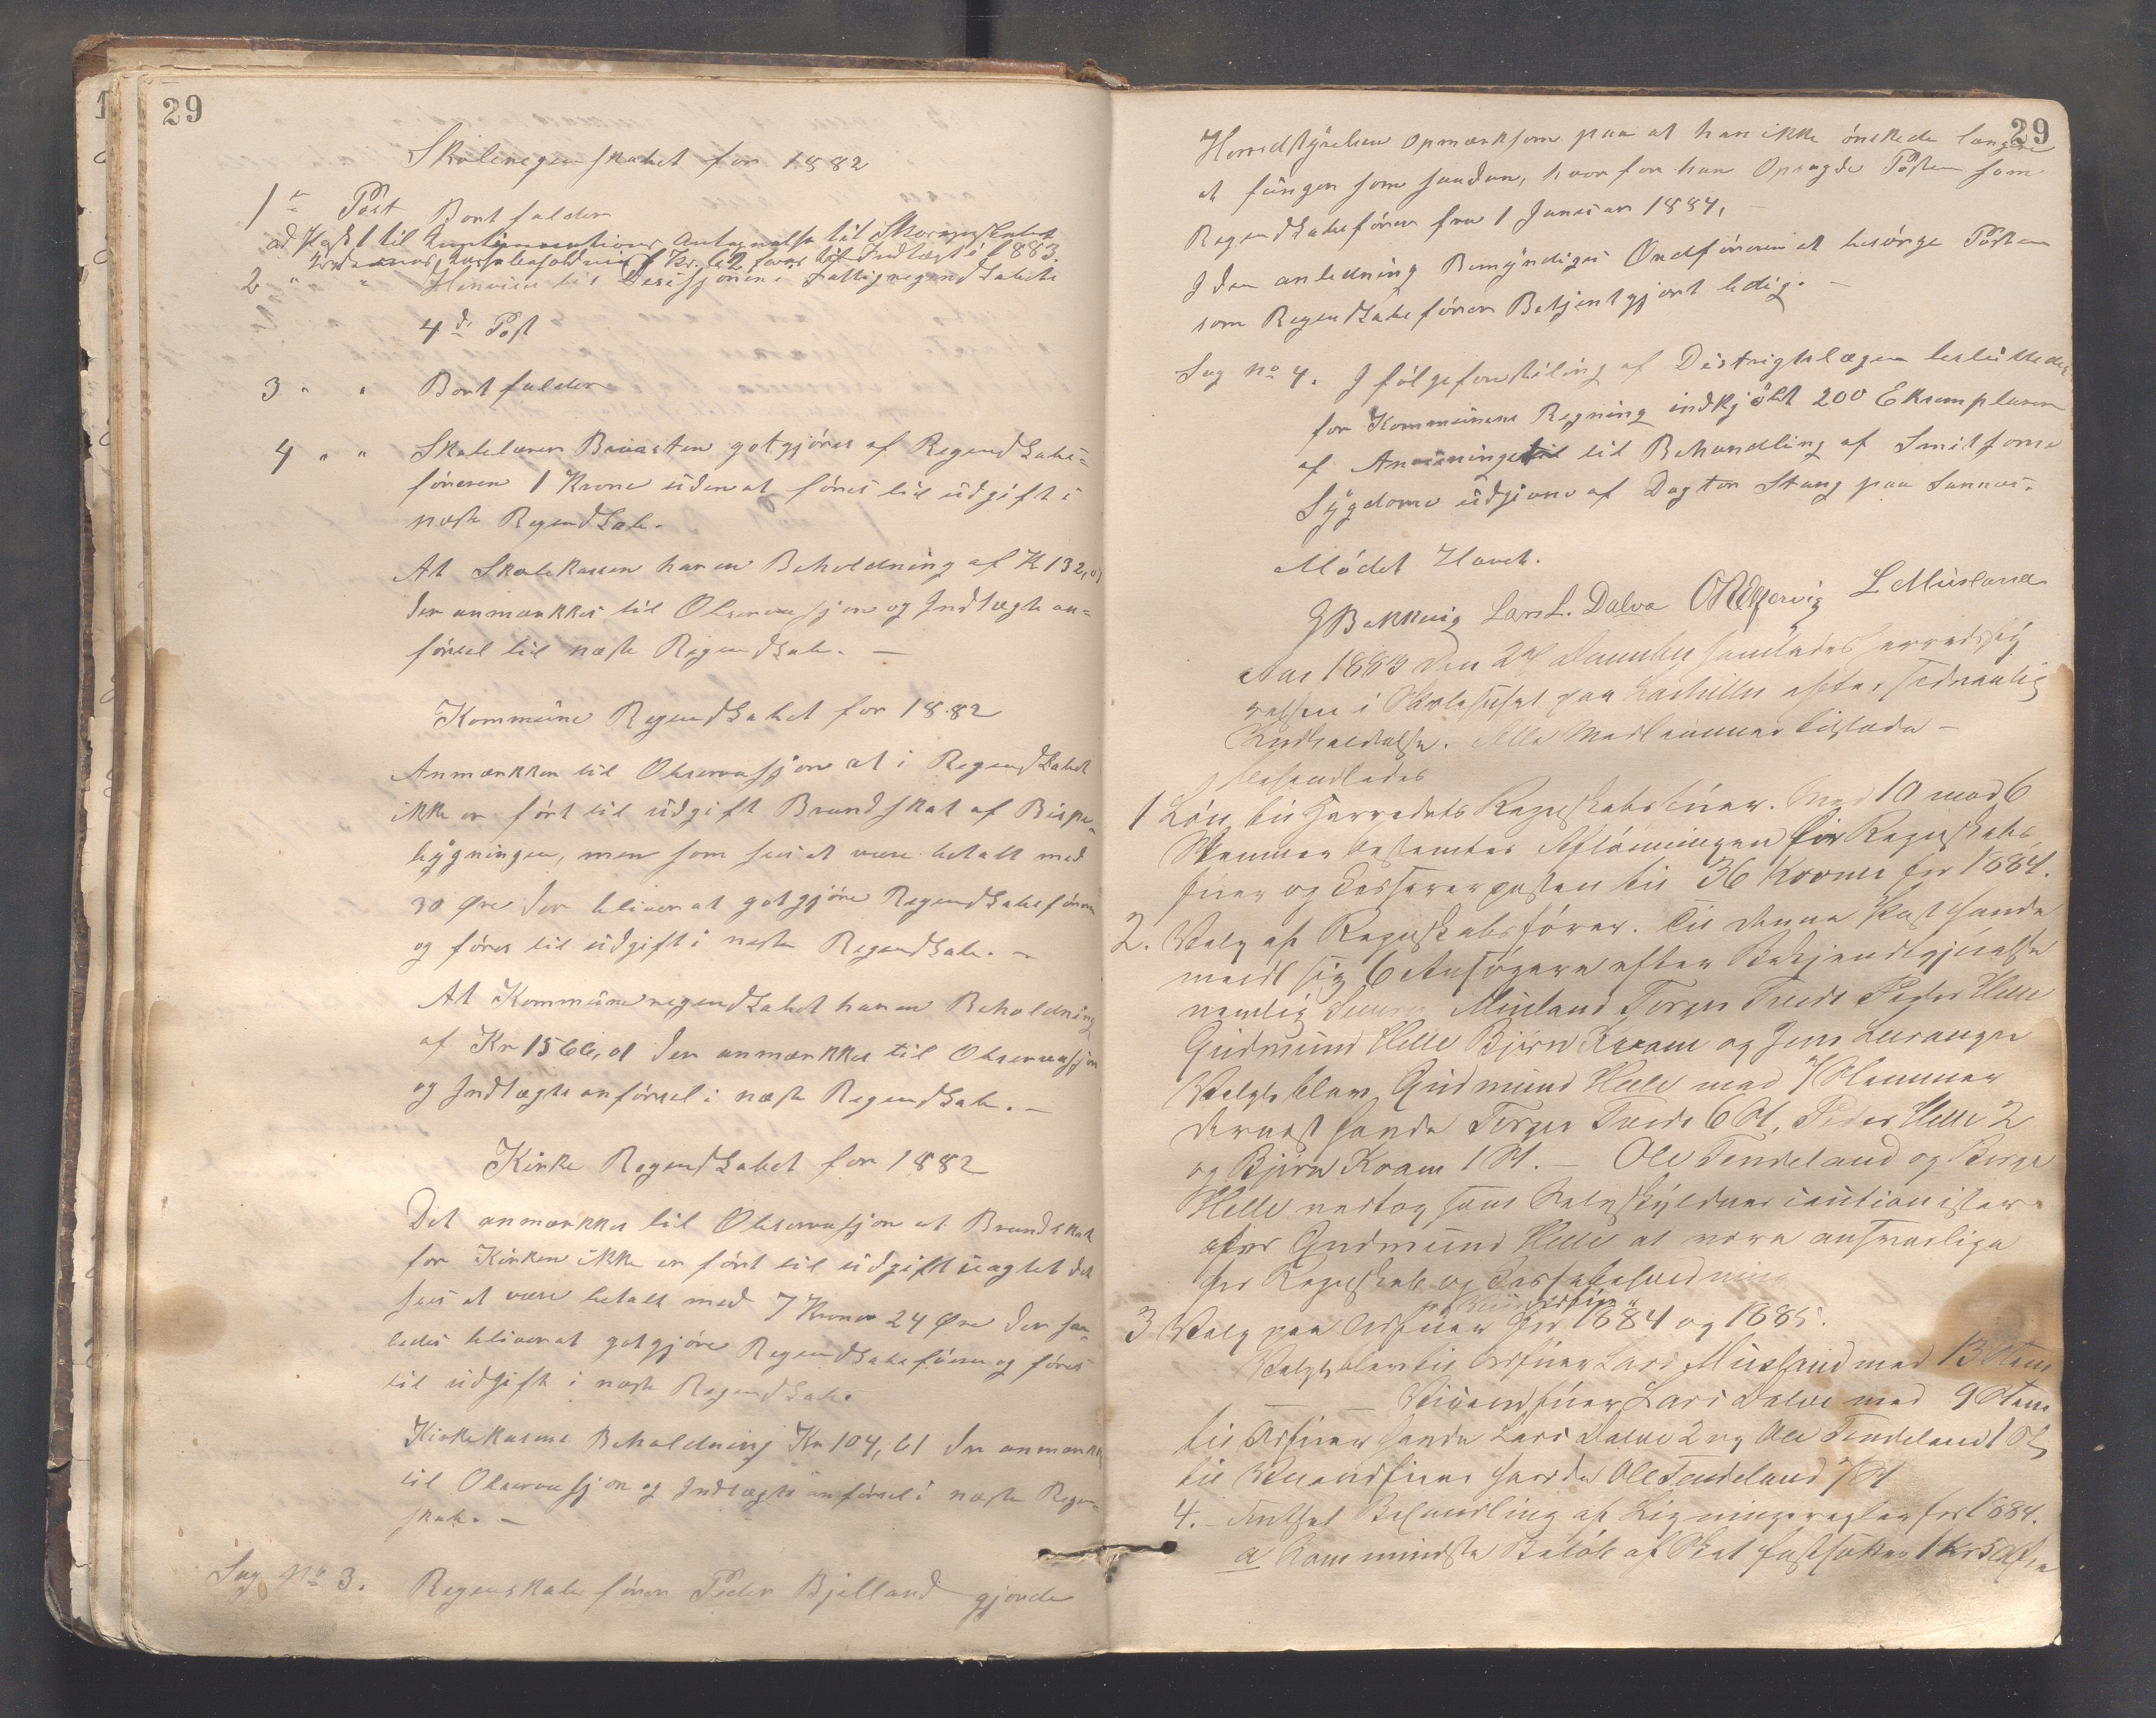 29
Skoleregenskabet for 1882
1ste Post Bortfalder
2 " " Henvises til Desisjonen i Fattigregendskabets
4de Post
3 " " Bortfalder
4 " " Skolelærer Bævasten gotgjöres af Regendskabs=
föreren 1 Krone uden at föres til üdgift i
næste Regendskab.
At Skolekassen har en Beholdning af K 132,01
der anmærkes til Observasjon og Indtægts an=
försel til næste Regendskab. —
Kommüne Regendskabet for 1882
Anmærkken til Observasjon at i Regendskabet
ikke er fört til üdgift Brandskat af Bispe-
bygningen, men som sees at være betalt med
30 Øre der bliver at gotgjöre Regendskabsförer
og föres til üdgift i neste Regendskab. —
At Kommüneregendskabet har en Beholdning
af Kr 1566,01 der anmærkkes til Observasjon
og Indtægts anförsel i næste Regendskab. —
Kirke Regendskabet for 1882
Det anmærkkes til Observasjon at Brandskat
for Kirken ikke er fört til üdgift üagtet det
sees at være betalt med 7 Kroner 24 Øre der saa-
ledes bliver at gotgjöre Regendskabsföreren og föres
til üdgift i næste Regendskab.
Kirkekassens Beholdning Kr 104,61 der anmærkk
til Observasjon og Indtægts anförsel i næste Regen-
skab. —
Sag No 3. Regenskabsförer Peder Bjelland gjorde
29
Herredstyrelsen opmærksom paa at han ikke önskede længere
at füngere som saadan, hvorfor han Opsagde Posten som
Regendskabsförer fra 1 Januar 1884, —
I den anledning Bemyndiges Ordföreren at besörge Posten
som Regendskabsförer Bekjentgjort ledig. —
Sag No 4. I fölge forestiling af Distrigtslægen beslüttedes
for Kommünens Regning indkjöbt 200 Eksemplarer
af Anvisninger til Behandling af Smitsome
Sygdome üdgivne af Dogter Stang paa Sannes.
Mödet Hævet.
G Bakkevig Lars L. Dalva L Müsland
Aar 1883 den 24 December samledes herredssty
relsen i Skolehuset paa efter sedvanlig
Kundgjørelse. Alle Medlemmer tilstede —
behandledes
1 Løn til Herredets Regnskabsfører. Med 10 mod 6
Stemmer bestemtes Aflønningen for Regnskabs
fører og Kassererposten til 36 Kroner for 1884.
2. Valg af Regnskabsfører. Til denne Post havde
meldt sig 6 Ansøgere efter Bekjendtgjørelse
nemlig Müsland Torger Tvede Peder Helle
Gudmund Helle Björn Kvam og Jens
Valgt blev Gudmund Helle med 7 Stemmer
dernæst havde Torger Tvede 6 St, Peder Helle 2
og Björn Kvam 1 St. — Ole Tendeland og Børge
Helle vedtog som Selvskyldner cautionister
for Gudmund Helle at være ansvarlige
for Regnskab og Kassabeholdning
3 Valg paa Ordfører for 1884 og 1885.
Valgt blev til Ordfører Lars Müsland med 13 Stem
— Viceordfører Lars Dalva med 9 Stem
til Ordfører havde Lars Dalva 2 og Ole Tendeland 1 St
til Viceordfører havde Ole Tendeland 7 St
4. — Behandling af Ligningsregler for 1884.
a Som mindste Beløb af Skat fastsættes 1 Kr